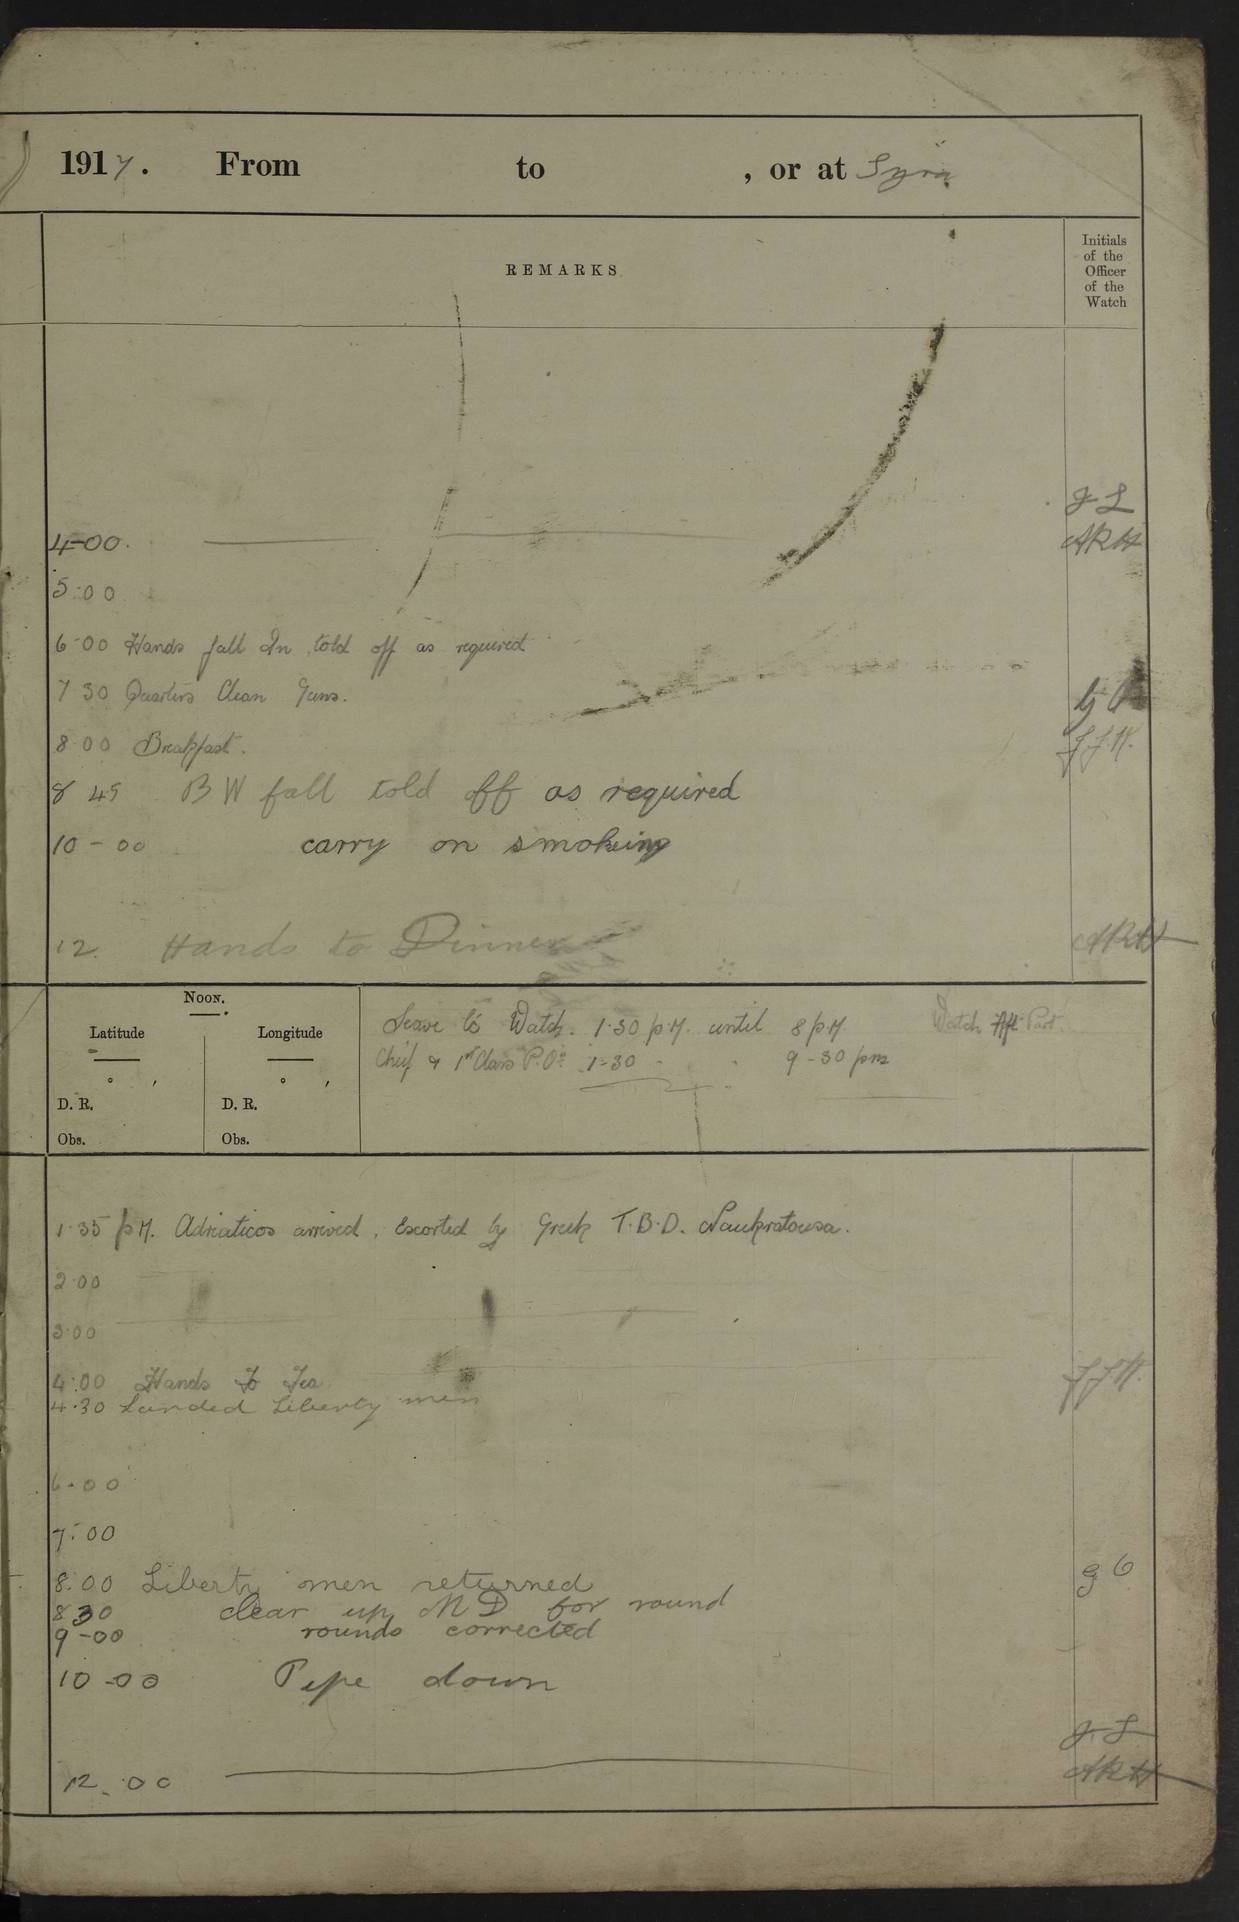 1917. From to , or at Syra
REMARKS
Initials
of the
Officer
of the
Watch
J L
4-00. ARH
5:00
6-00 Hands fall In, told off as required
7 30 Quarters Clean Guns.
8-00 Breakfast. J.J.H.
8 45 B W fall told off as required
10-00 carry on smoking
12. Hands to Dinner ARH
NOON.
Latitude Longitude
° ′ ° ′
D. R. D. R.
Obs. Obs.
Leave to Watch. 1.30 p.M. until 8 p.M. Watch Aft Part.
Chief & 1st Class P.Os 1-30 - . 9-30 pm
1.35 p.M. Adriaticos arrived, Escorted by Greek T.B.D. Naukratousa.
2.00
3.00
4:00 Hands To Tea J.J.H.
4.30 Landed Liberty men
6.00
7:00
8.00 Liberty men returned G O
8 30 clear up M D for round
9-00 rounds corrected
10-00 Pipe down
J. L
12.00 ARH